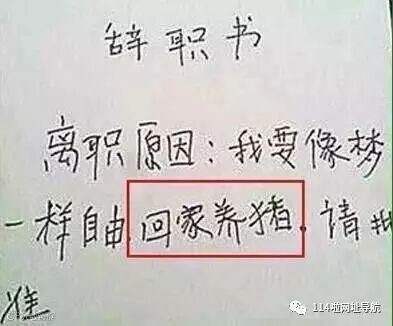 辞职书
离职原因：我要像梦
一样自由，回家养猪，请批
准
114啦网址导航